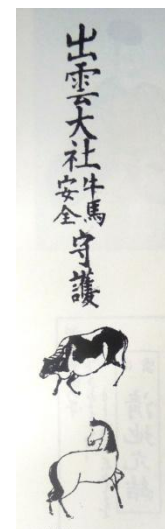 出雲大社牛馬安全守護